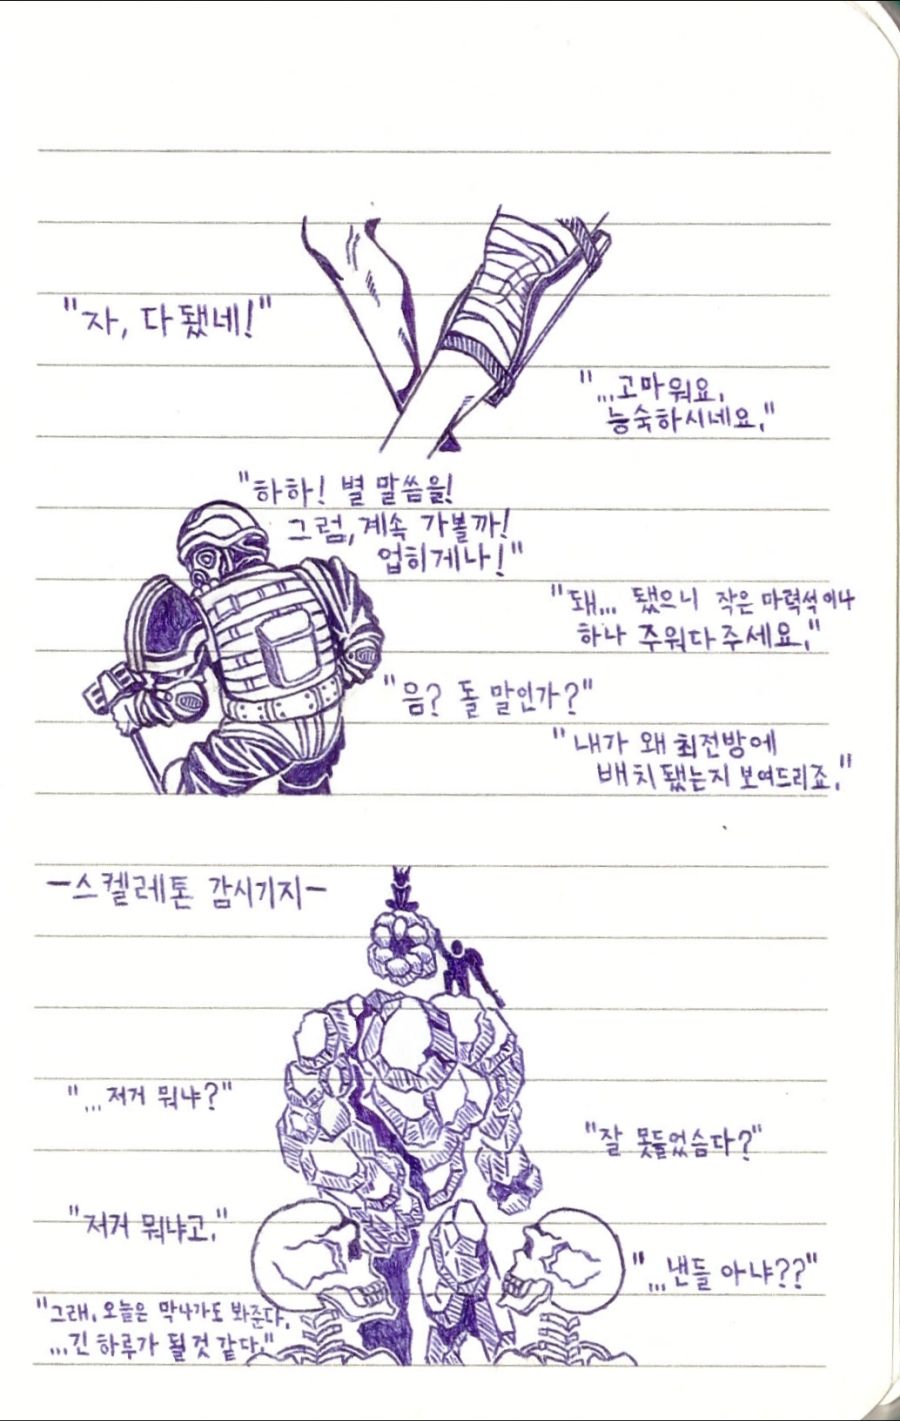 "자, 다 됐네!"
"...고마워요.
능숙하시네요."
"하하! 별 말씀을!
그럼, 계속 가볼까!
업히게나!"
"돼... 됐으니 작은 마력석이나
하나 주워다주세요."
"음? 돌 말인가?"
"내가 왜 최전방에
배치됐는지 보여드리죠."
-스켈레톤 감시기지-
"...저거 뭐냐?"
"잘 못들었슴다?"
"저거 뭐냐고."
"...낸들 아냐??"
"그래, 오늘은 막나가도 봐준다.
...긴 하루가 될것 같다."